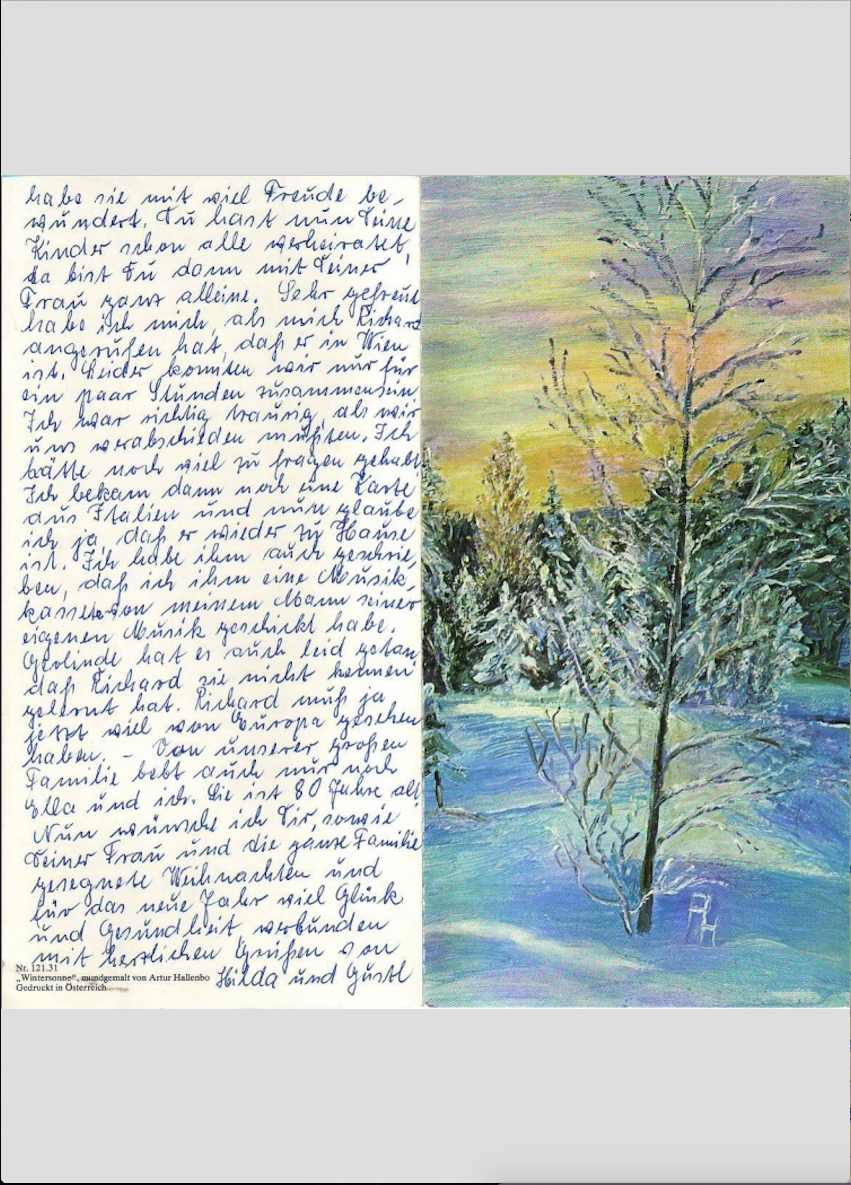 habe sie mit viel Freude be-
wundert. Du hast nun Deine
Kinder schon alle verheiratet,
da bist Du dann mit Deiner
Frau ganz alleine. Sehr gefreut
habe ich mich, als mich Richard
angerufen hat, daß er in Wien
ist. Leider konnten wir nur für
ein paar Stunden zusammensein.
Ich war richtig traurig, als wir
uns verabschieden mußten. Ich
hätte noch viel zu fragen gehabt.
Ich bekam dann noch eine Karte
aus Italien und nun glaube
ich ja, daß er wieder zu Hause
ist. Ich habe ihm auch geschrie-
ben, daß ich ihm eine Musik-
kassete von meinem Mann seiner
eigenen Musik geschickt habe.
Gerlinde hat es auch leid getan,
daß Richard sie nicht kennen
gelernt hat. Richard muß ja
jetzt viel von Europa gesehen
haben. – Von unserer großen
Familie lebt auch nur noch
Ella und ich. Sie ist 80 Jahre alt.
Nun wünsche ich Dir, sowie
Deiner Frau und die ganze Familie
gesegnete Weihnachten und
für das neue Jahr viel Glück
und Gesundheit verbunden
mit herzlichen Grüßen von
Hilda und Gustl
Nr. 121.31
„Wintersonne“, mundgemalt von Artur Hallenbo
Gedruckt in Österreich
AH